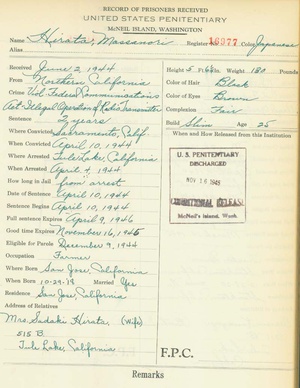 RECORD OF PRISONERS RECEIVED
UNITED STATES PENITENTIARY
McNEIL ISLAND, WASHINGTON
Name Hirata, Massanori Register 16977 Color Japanese
Alias
Received June 2, 1944 Height 5 Ft 6½ In. Weight 130 Pounds
From Northern California Color of Hair Black
Crime Viol. Federal Communications Color of Eyes Brown
Act-Illegal Operation of Radio Transmitter Complexion Fair
Sentence 2 years Build Slim Age 25
Where Convicted Sacramento, Calif. When and How Released from this Institution
When Convicted April 10, 1944
Where Arrested Tule Lake, California
When Arrested April 4, 1944
How long in Jail from arrest
Date of Sentence April 10, 1944
Sentence Begins April 10, 1944
Full sentence Expires April 9, 1946
Good time Expires November 16, 1945
Eligible for Parole December 9, 1944
U. S. PENITENTIARY
DISCHARGED
NOV 16 1945
CONDITIONAL RELEASE
McNeil's Island, Wash.
Occupation Farmer
Where Born San Jose, California
When Born 10-29-18 Married Yes
Residence San Jose, California
Address of Relatives
Mrs. Sadaki Hirata, (Wife)
515 B.
Tule Lake, California
F.P.C.
Remarks